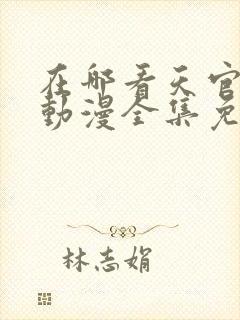 在哪看天官
動漫全集免
林志娟